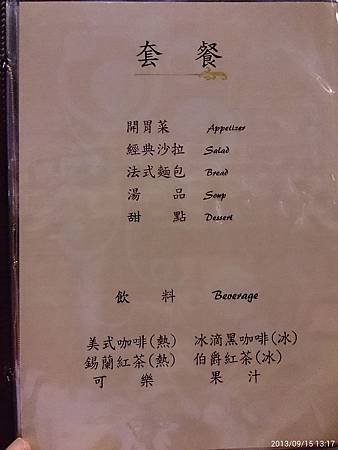 套 餐
開胃菜 Appetizer
經典沙拉 Salad
法式麵包 Bread
湯 品 Soup
甜 點 Dessert
飲 料 Beverage
美式咖啡(熱) 冰滴黑咖啡(冰)
錫蘭紅茶(熱) 伯爵紅茶(冰)
可 樂 果 汁
2013/09/15 13:17